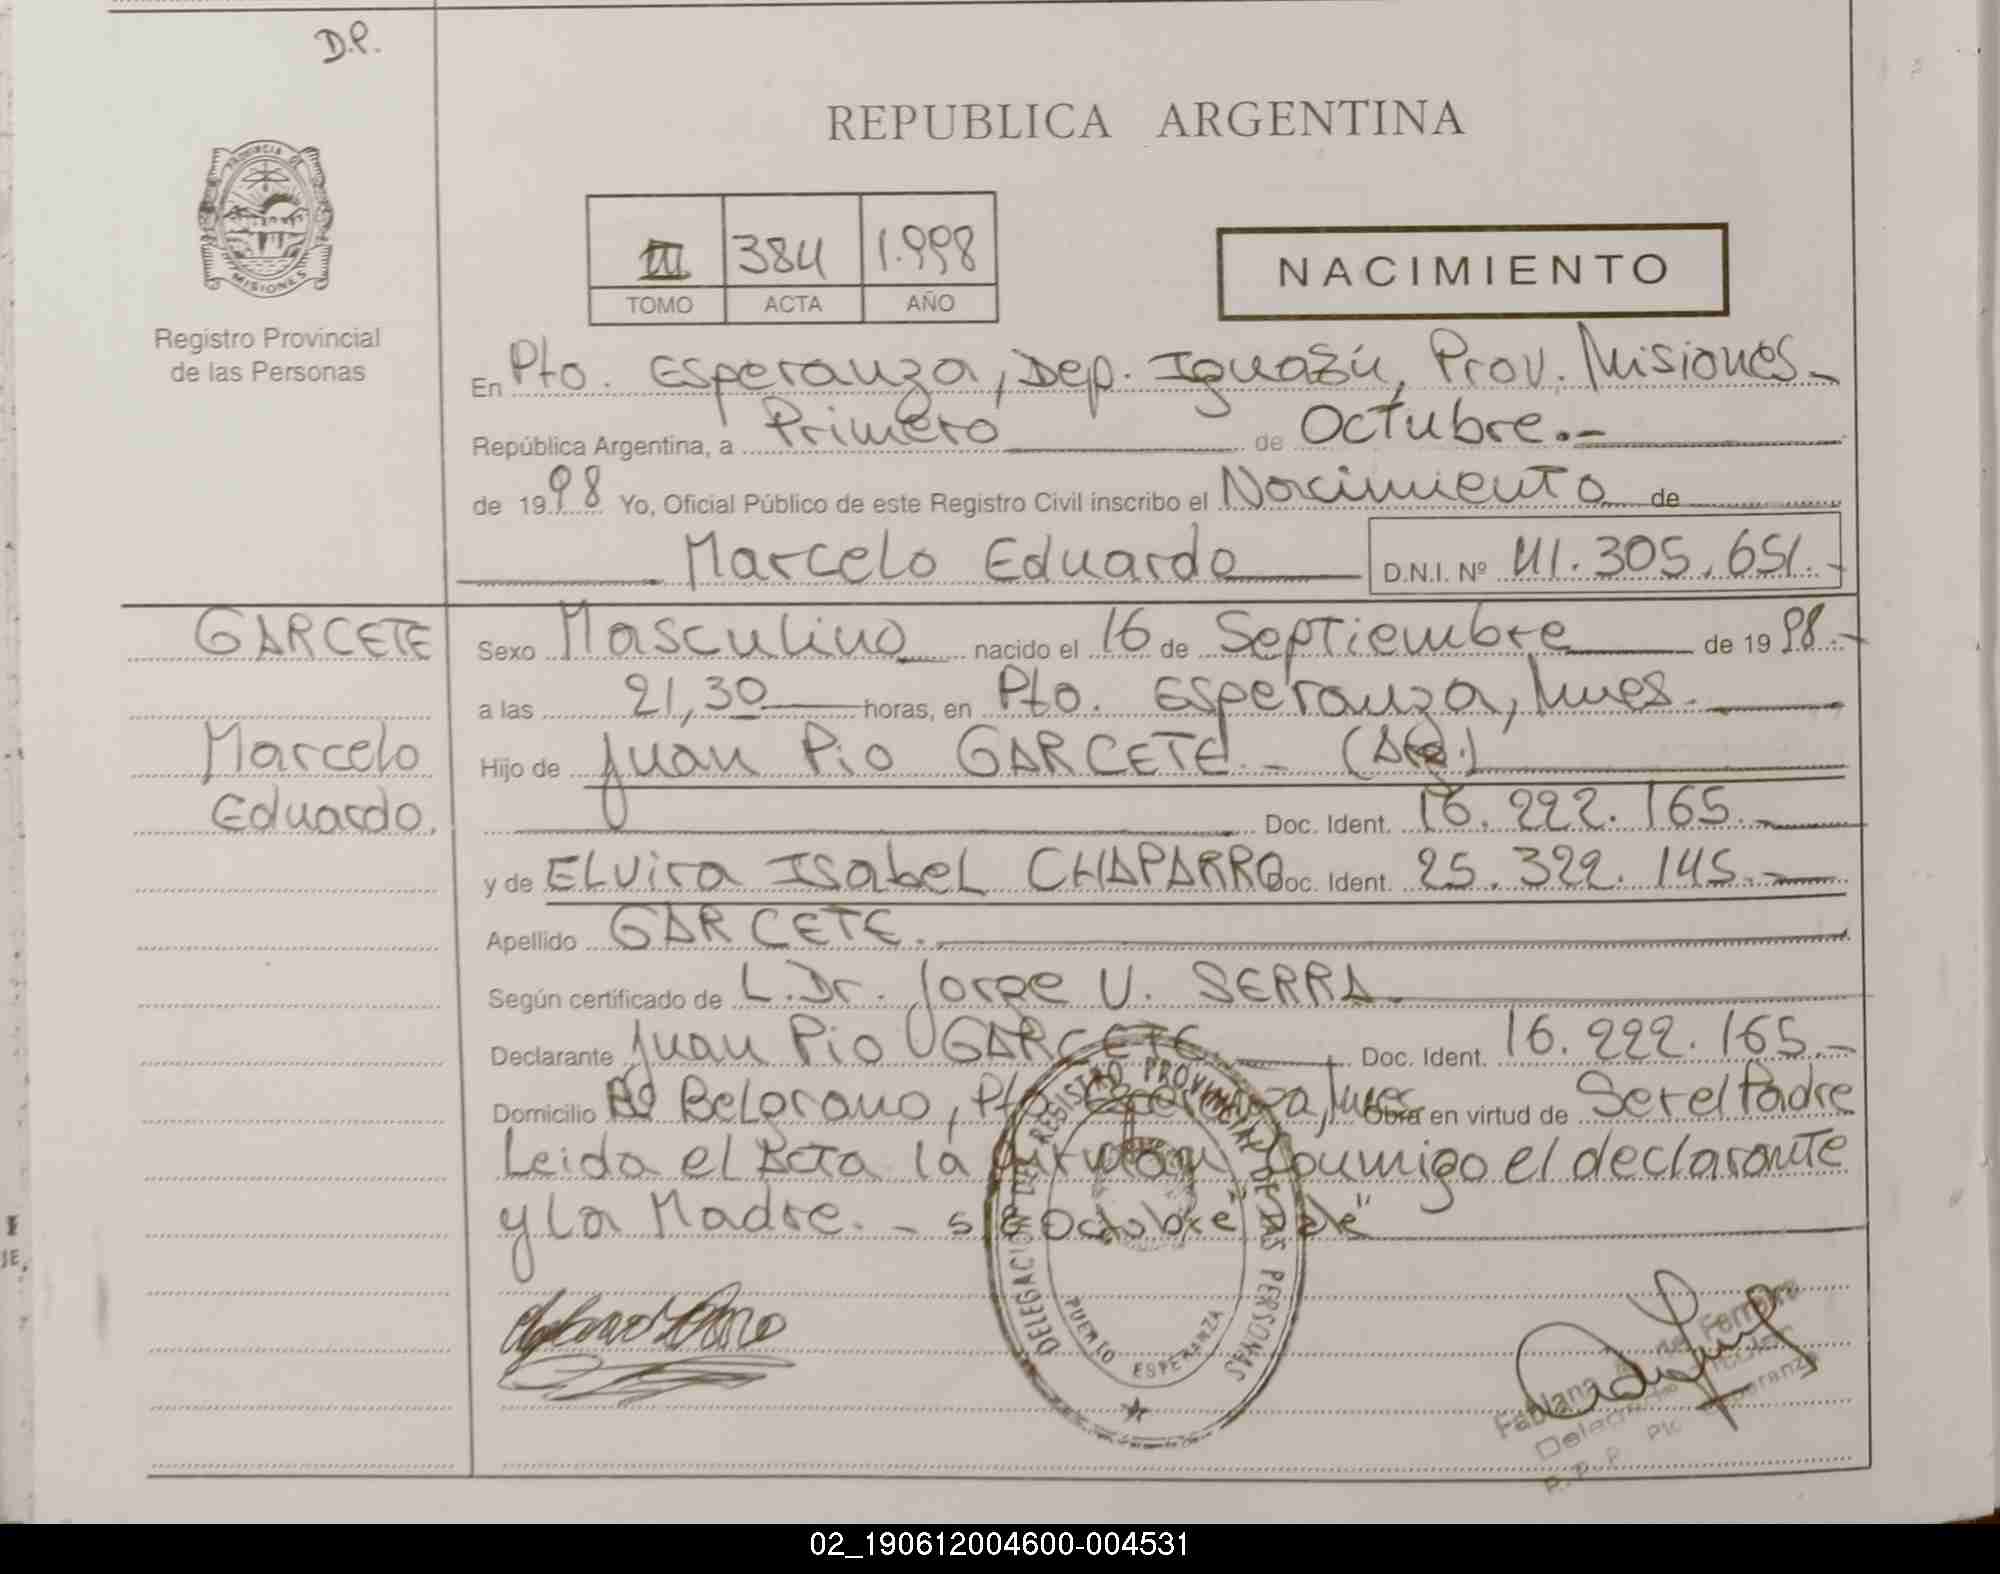 D.P.
REPUBLICA ARGENTINA
PROVINCIA DE
MISIONES
Registro Provincial
de las Personas
III 384 1.998
TOMO ACTA AÑO
NACIMIENTO
En Pto. Esperanza, Dep. Iguazú, Prov. Misiones.-
República Argentina, a Primero de Octubre.-
de 1998 Yo, Oficial Público de este Registro Civil inscribo el Nacimiento de
Marcelo Eduardo D.N.I. Nº 41.305.651.-
GARCETE
Marcelo
Eduardo.
Sexo Masculino nacido el 16 de Septiembre de 1998.-
a las 21,30 horas, en Pto. Esperanza, Mnes.
Hijo de Juan Pio GARCETE.- (Arg.)
Doc. Ident. 16.222.165.-
y de ELvira Isabel CHAPARRO Doc. Ident. 25.322.145.-
Apellido GARCETE.
Según certificado de L.Dr. Jorge U. SERRA.
Declarante Juan Pio GARCETE Doc. Ident. 16.222.165.-
Domicilio Bº Belgrano, Pto. Esperanza, Mnes Obra en virtud de Ser el Padre
Leida el Acta la firman Conmigo el declarante
y la Madre.- s/r Octubre" Vale"
DELEGACION DEL REGISTRO PROVINCIAL DE LAS PERSONAS
PUERTO ESPERANZA
Fabiana Ferreira
Pto Esperanza
02_190612004600-004531